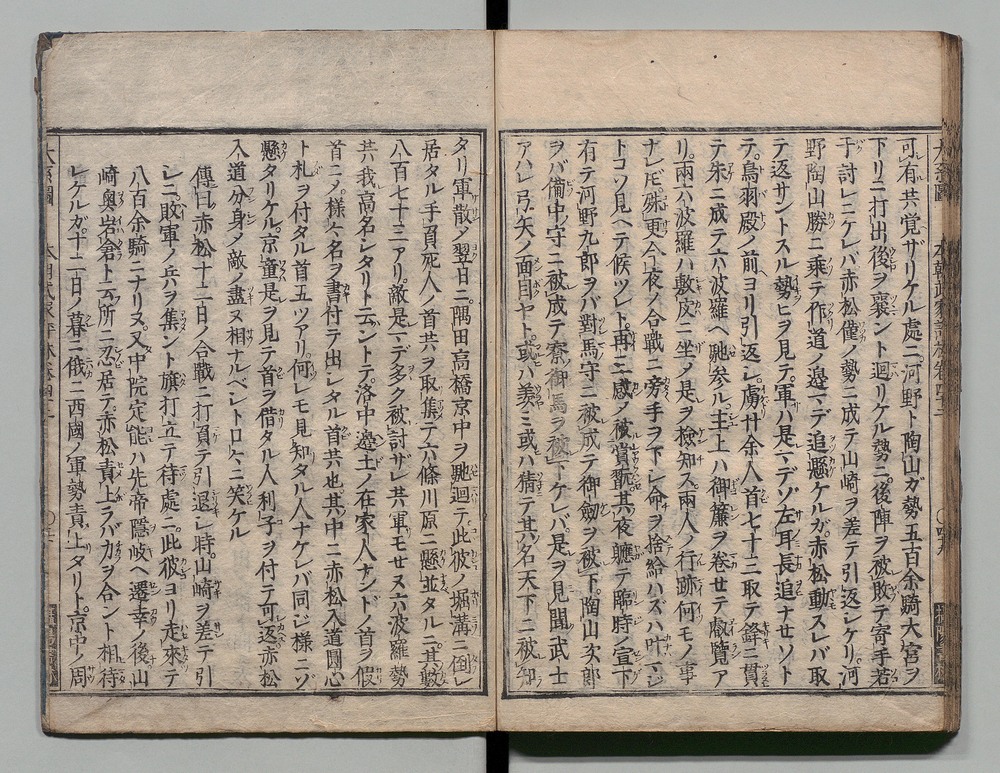 可有共覚ザリケル處ニ河野ト陶山ガ勢五百余騎大宮ヲ
下リニ打出後ヲ褁ント迴リケル勢ニ後陣ヲ被敗テ寄手若
干討レニケレバ赤松僅ノ勢ニ成テ山崎ヲ差テ引返シケリ河
野陶山勝ニ乘テ作道ノ邉マデ追懸ケルガ赤松動スレバ取
テ返サントスル勢ヒヲ見テ軍ハ是マデゾ左耳長追ナセソト
テ鳥羽殿ノ前ヨリ引返シ虜廿余人首七十三取テ鋒ニ貫
テ朱ニ成テ六波羅ヘ馳参ル主上ハ御簾ヲ卷セテ叡覧ア
リ兩六波羅ハ敷皮ニ坐ノ是ヲ檢知ス兩人ノ行跡何モノ事
ナレ𪜈殊更今夜ノ合戰ニ旁手ヲ下シ命ヲ捨給ハズハ叶マジ
トコソ見ヘテ候ツレト再三感ノ被賞翫其夜軈テ臨時ノ宣下
有テ河野九郎ヲバ對馬守ニ被成テ御劔ヲ被下陶山次郎
ヲバ備中守ニ被成テ寮御馬ヲ被下ケレバ是ヲ見聞武士
アハレ弓矢ノ面目ヤト或ハ羨ミ或ハ猜テ其名天下ニ被知
タリ軍散ノ翌日ニ隅田高橋京中ヲ馳迴テ此彼ノ堀溝ニ倒レ
居タル手負死人ノ首共ヲ取集テ六條川原ニ懸並タルニ其數
八百七十三アリ敵是マデ多ク被討ザレ共軍モせヌ六波羅勢
共我高名シタリト云ントテ洛中邉土ノ在家人ナンドノ首ヲ假
首ニノ様々名ヲ書付テ出シタル首共也其中ニ赤松入道圓心
ト札ヲ付タル首五ツアリ何レモ見知タル人ナケレバ同ジ様ニゾ
懸タリケル京童是ヲ見テ首ヲ借タル人利子ヲ付テ可返赤松
入道分身ノ敵ノ盡ヌ相ナルベシト口々ニ笑ケル
傳曰赤松十二日ノ合戰ニ打負テ引退シ時山崎ヲ差テ引
シニ敗軍ノ兵ヲ集ント旗打立テ待處ニ此彼ヨリ走來テ
八百余騎ニナリヌ又中院定能ハ先帝隱岐ヘ遷幸ノ後山
崎奥岩倉ト云所ニ忍居テ赤松責上ラバ力ヲ合ント相待
シケルガ十二日ノ暮ニ俄ニ西國ノ軍勢責上タリト京中ノ周